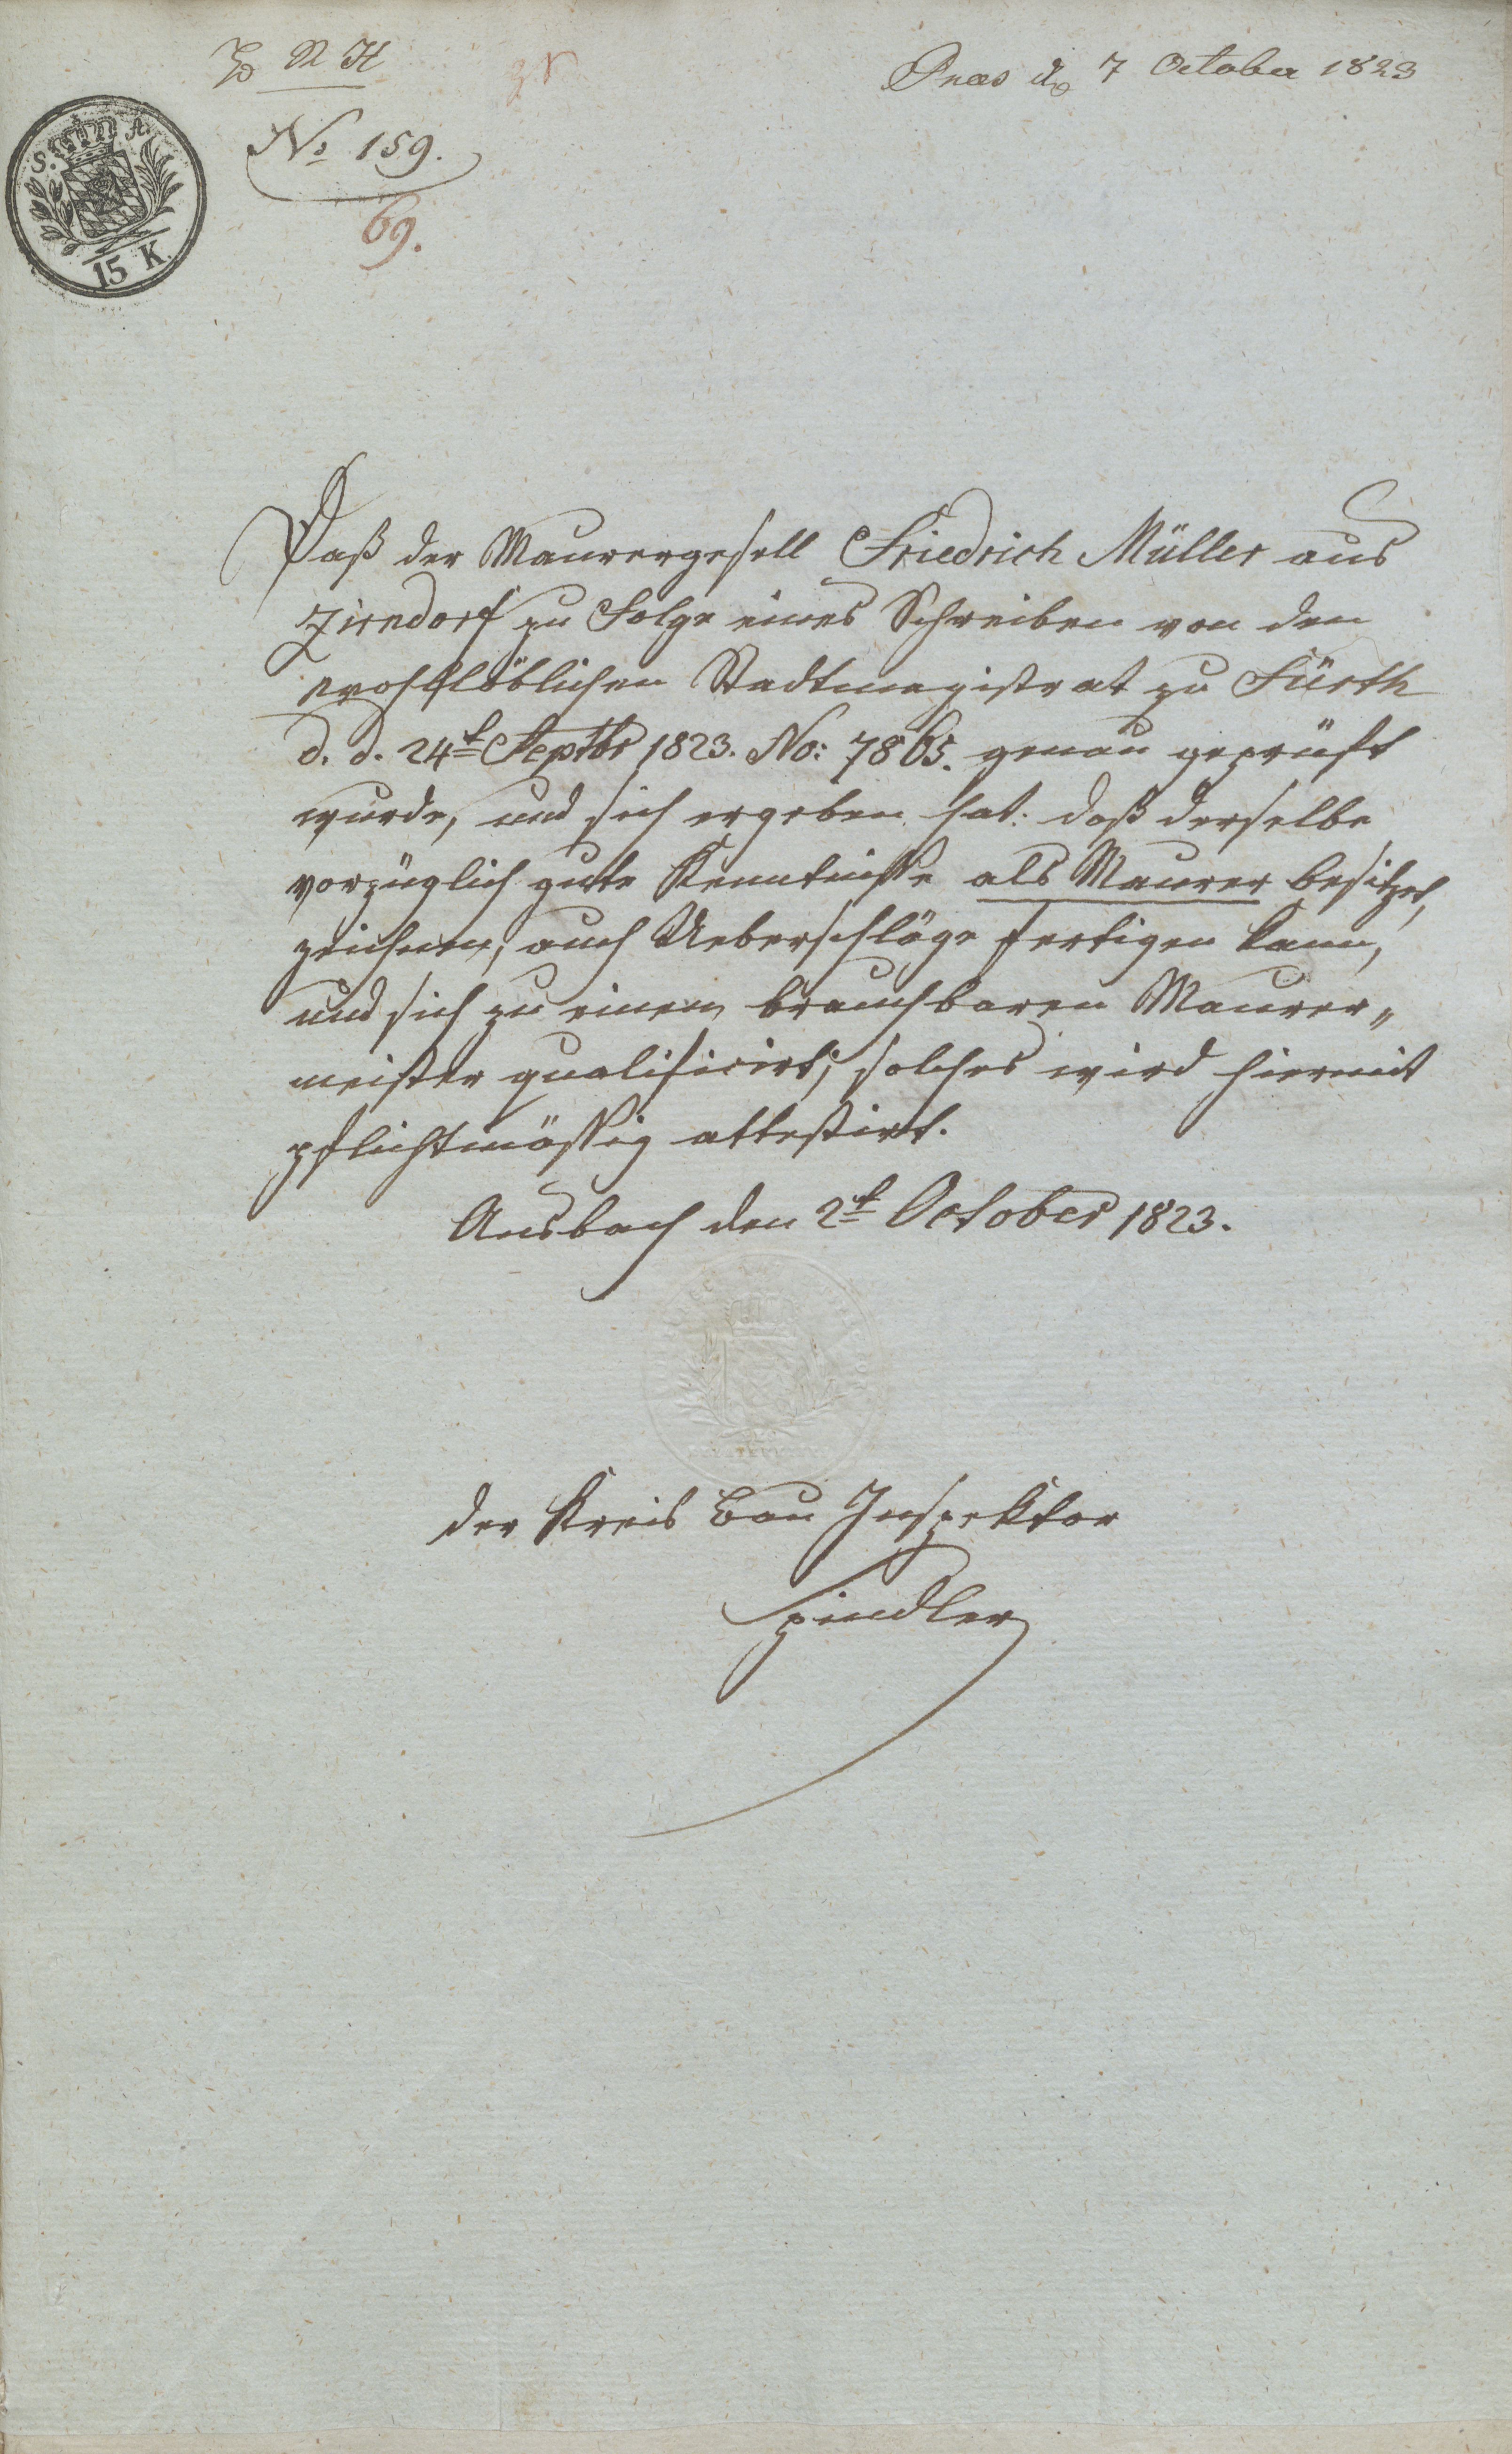 Præs d. 7 October 1823
S. A.
15 K.
No 159.
69.
Daß der Maurergesell Friedrich Müller aus
Zirndorf zu Folge eines Schreiben von den
wohllöblichen Stadtmagistrat zu Fürth
d. d. 24t Septbr 1823. No: 7865. genau geprüft
wurde, und sich ergeben hat: daß derselbe
vorzüglich gute Kenntniße als Maurer besitzet,
zeichnen, auch Ueberschläge fertigen kann,
und sich zu einem brauchbaren Maurer„
meister qualificirt; solches wird hiermit
pflichtmäßig attestirt.
Ansbach den 2t October 1823.
der Kreis Bau Inspektor
Spindler